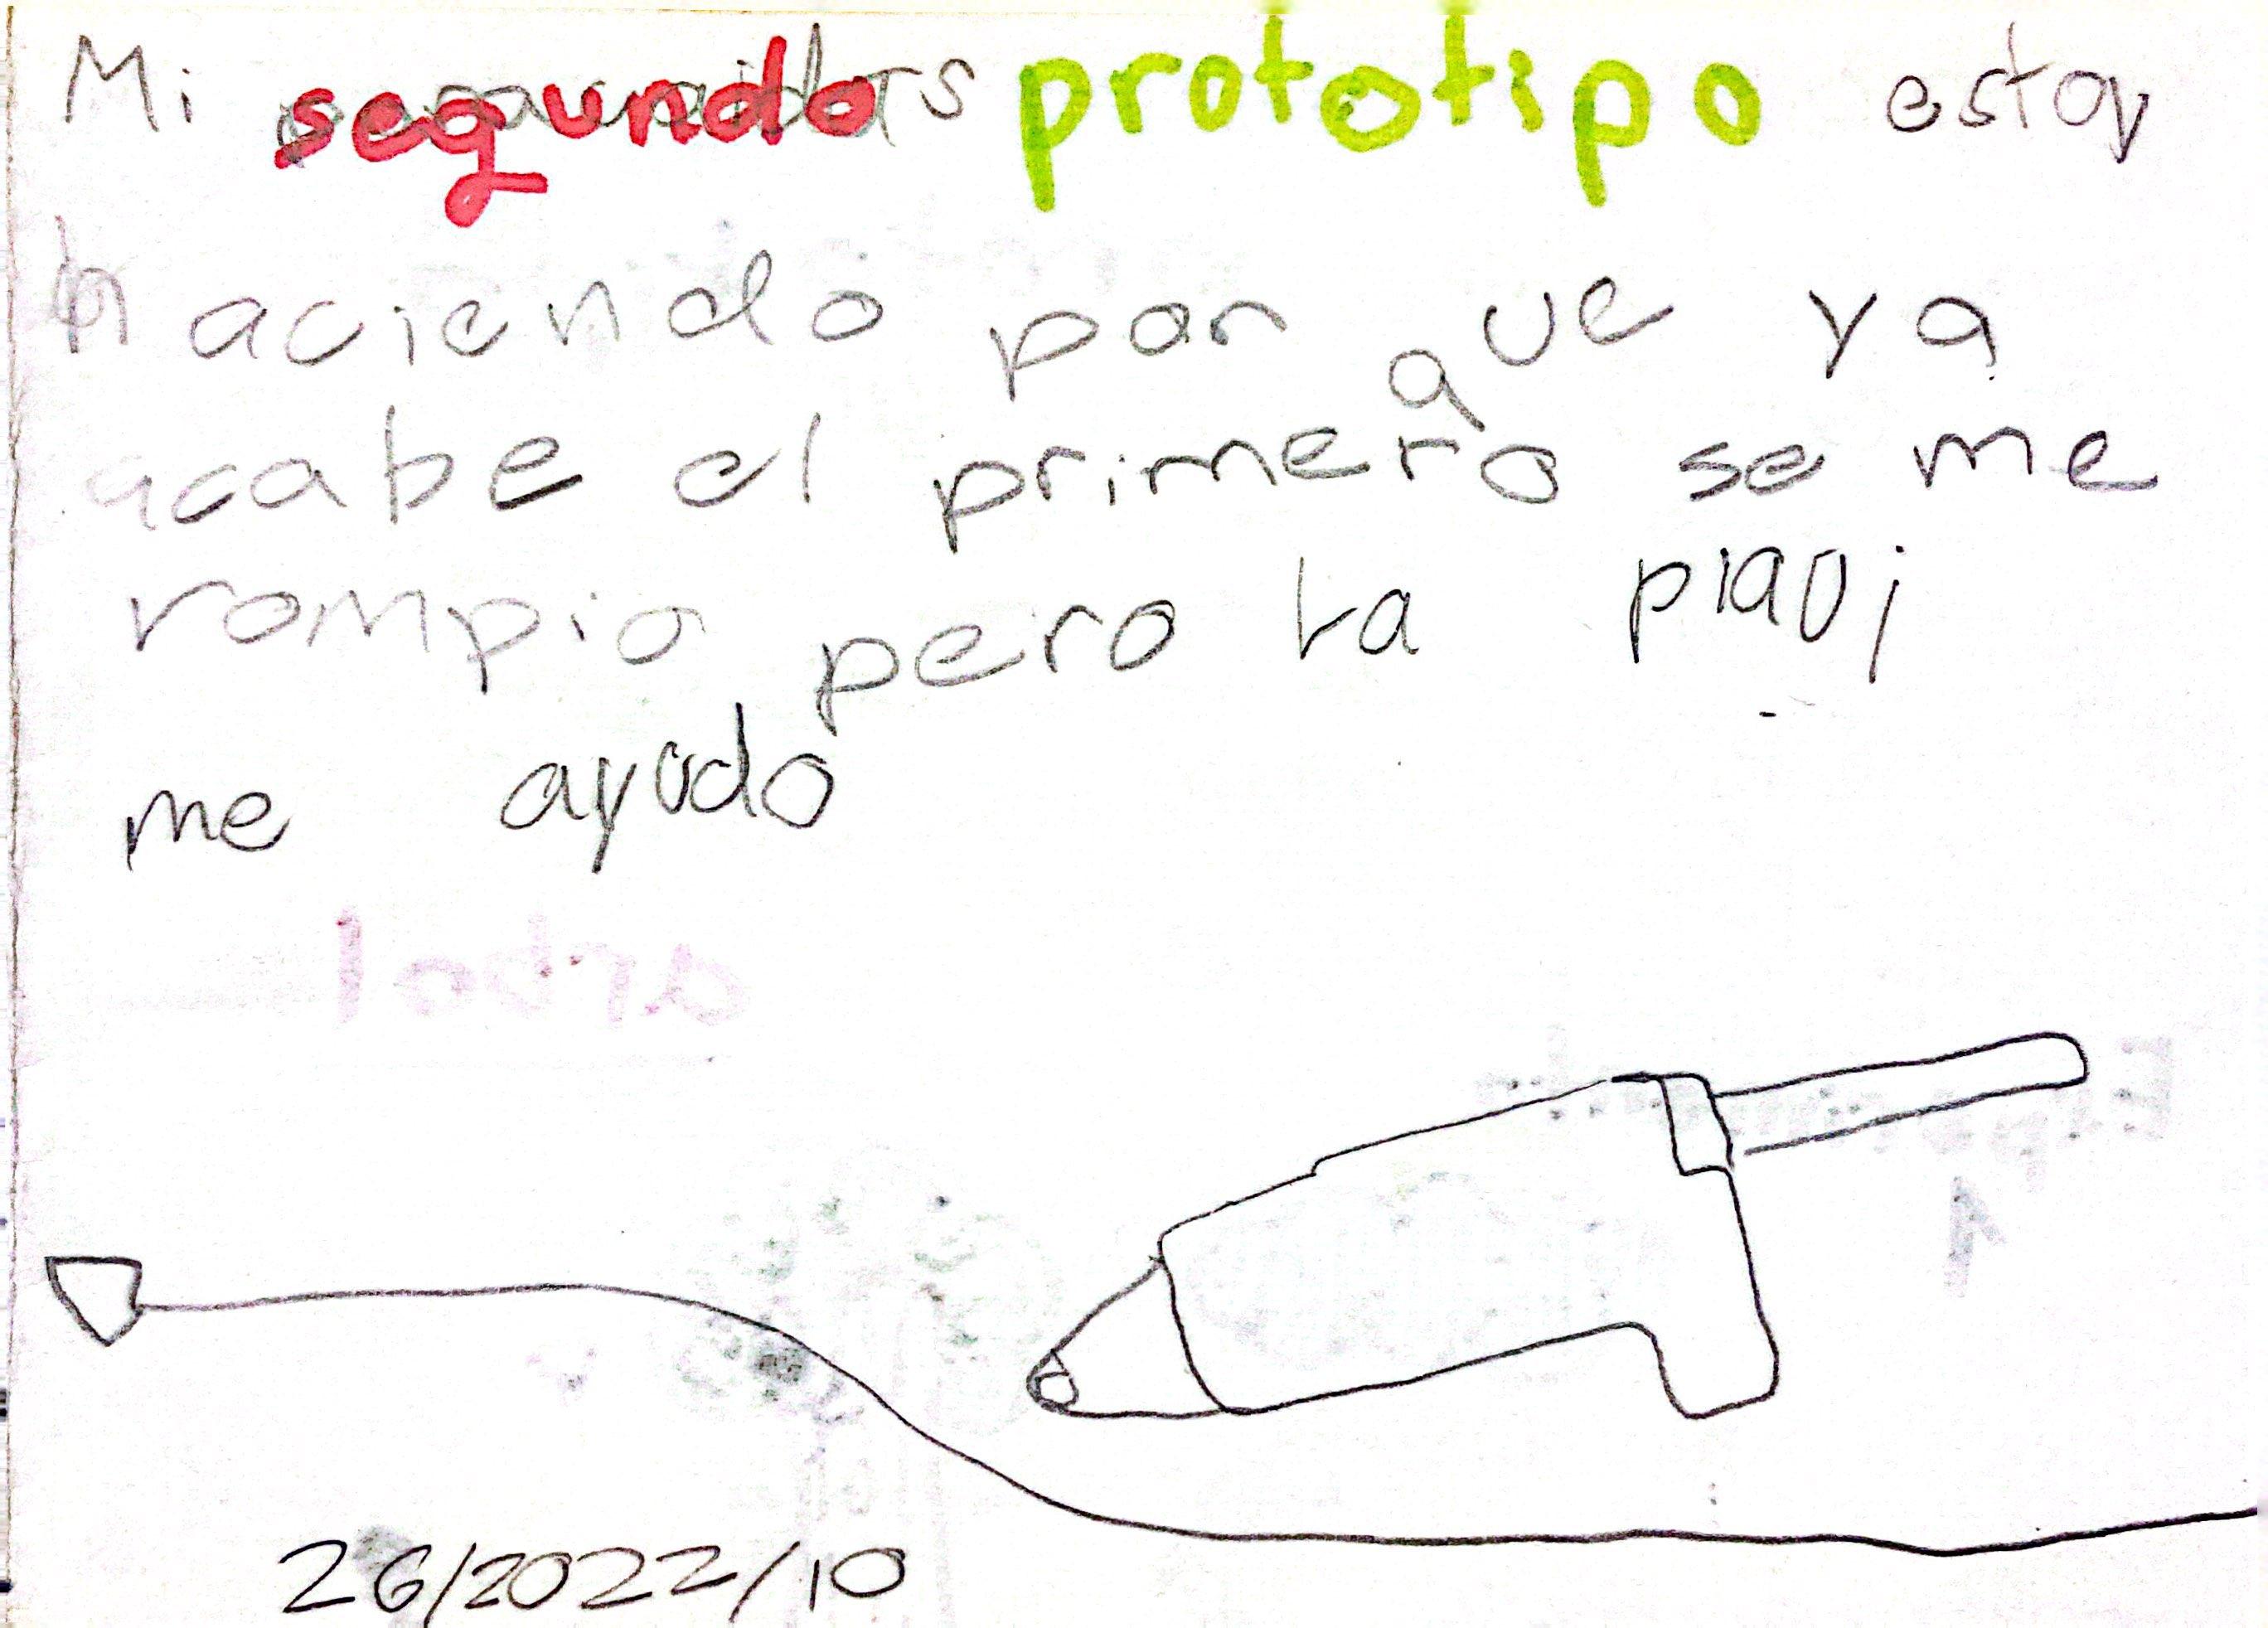 Mi segundo prototipo estoy
haciendo por que ya
acabe el primero se me
rompio pero la piaui
me ayudo
26/2022/10